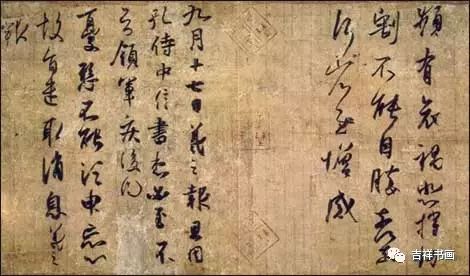 頻有哀禍悲摧切
割不能自勝奈何奈
何省慰增感
九月十七日羲之報且因
孔侍中信書想必至不
知領軍疾後問
憂懸不能須臾忘心
故旨遣取消息羲之
報
吉祥书画